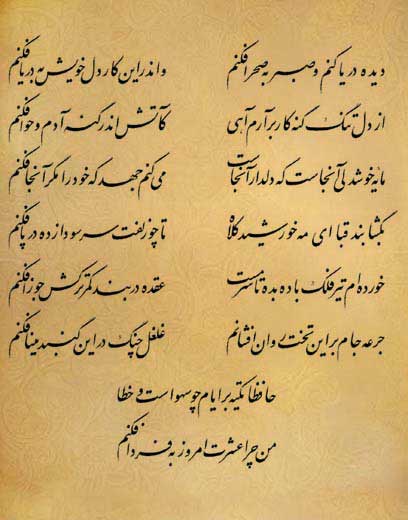 دیده دریا کنم و صبر به صحرا فکنم واندر این کار دل خویش به دریا فکنم
از دل تنگ گنه کار برآرم آهی کآتش اندر گنه آدم و حوا فکنم
مایه خوشدلی آنجاست که دلدار آنجاست می کنم جهد که خود را مگر آنجا فکنم
بگشا بند قبا ای مه خورشید کلاه تا چو زلفت سر سودازده در پا فکنم
خورده ام تیر فلک باده بده تا سرمست عقده در بند کمر ترکش جوزا فکنم
جرعه جام بر این تخت روان افشانم غلغل چنگ در این گنبد مینا فکنم
حافظا تکیه بر ایام چو سهو است و خطا
من چرا عشرت امروز به فردا فکنم